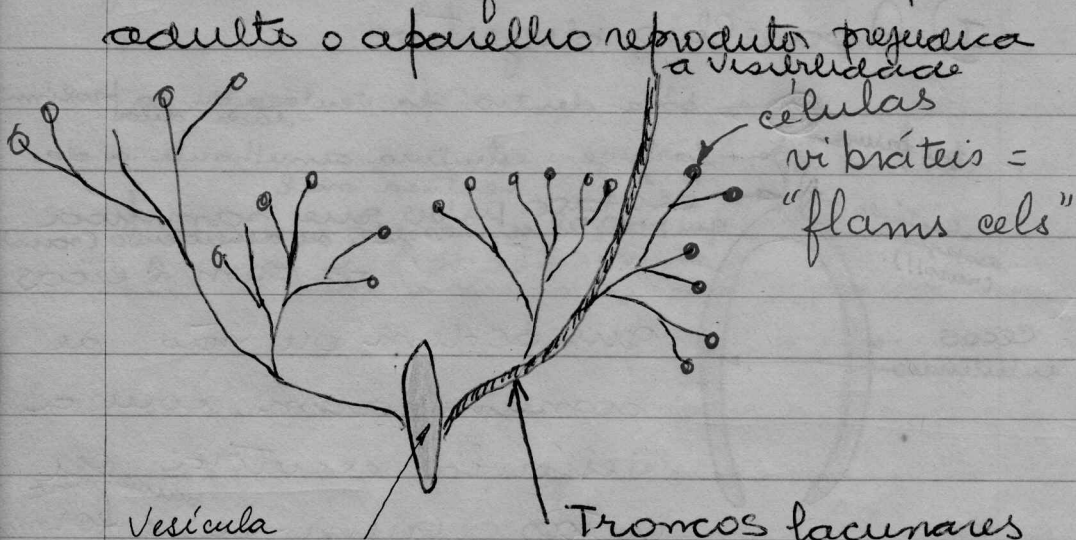 adulto o aparelho reprodutor prejudica
a visibilidade
células
vibráteis =
"flams cels"
Vesícula
Troncos lacunares